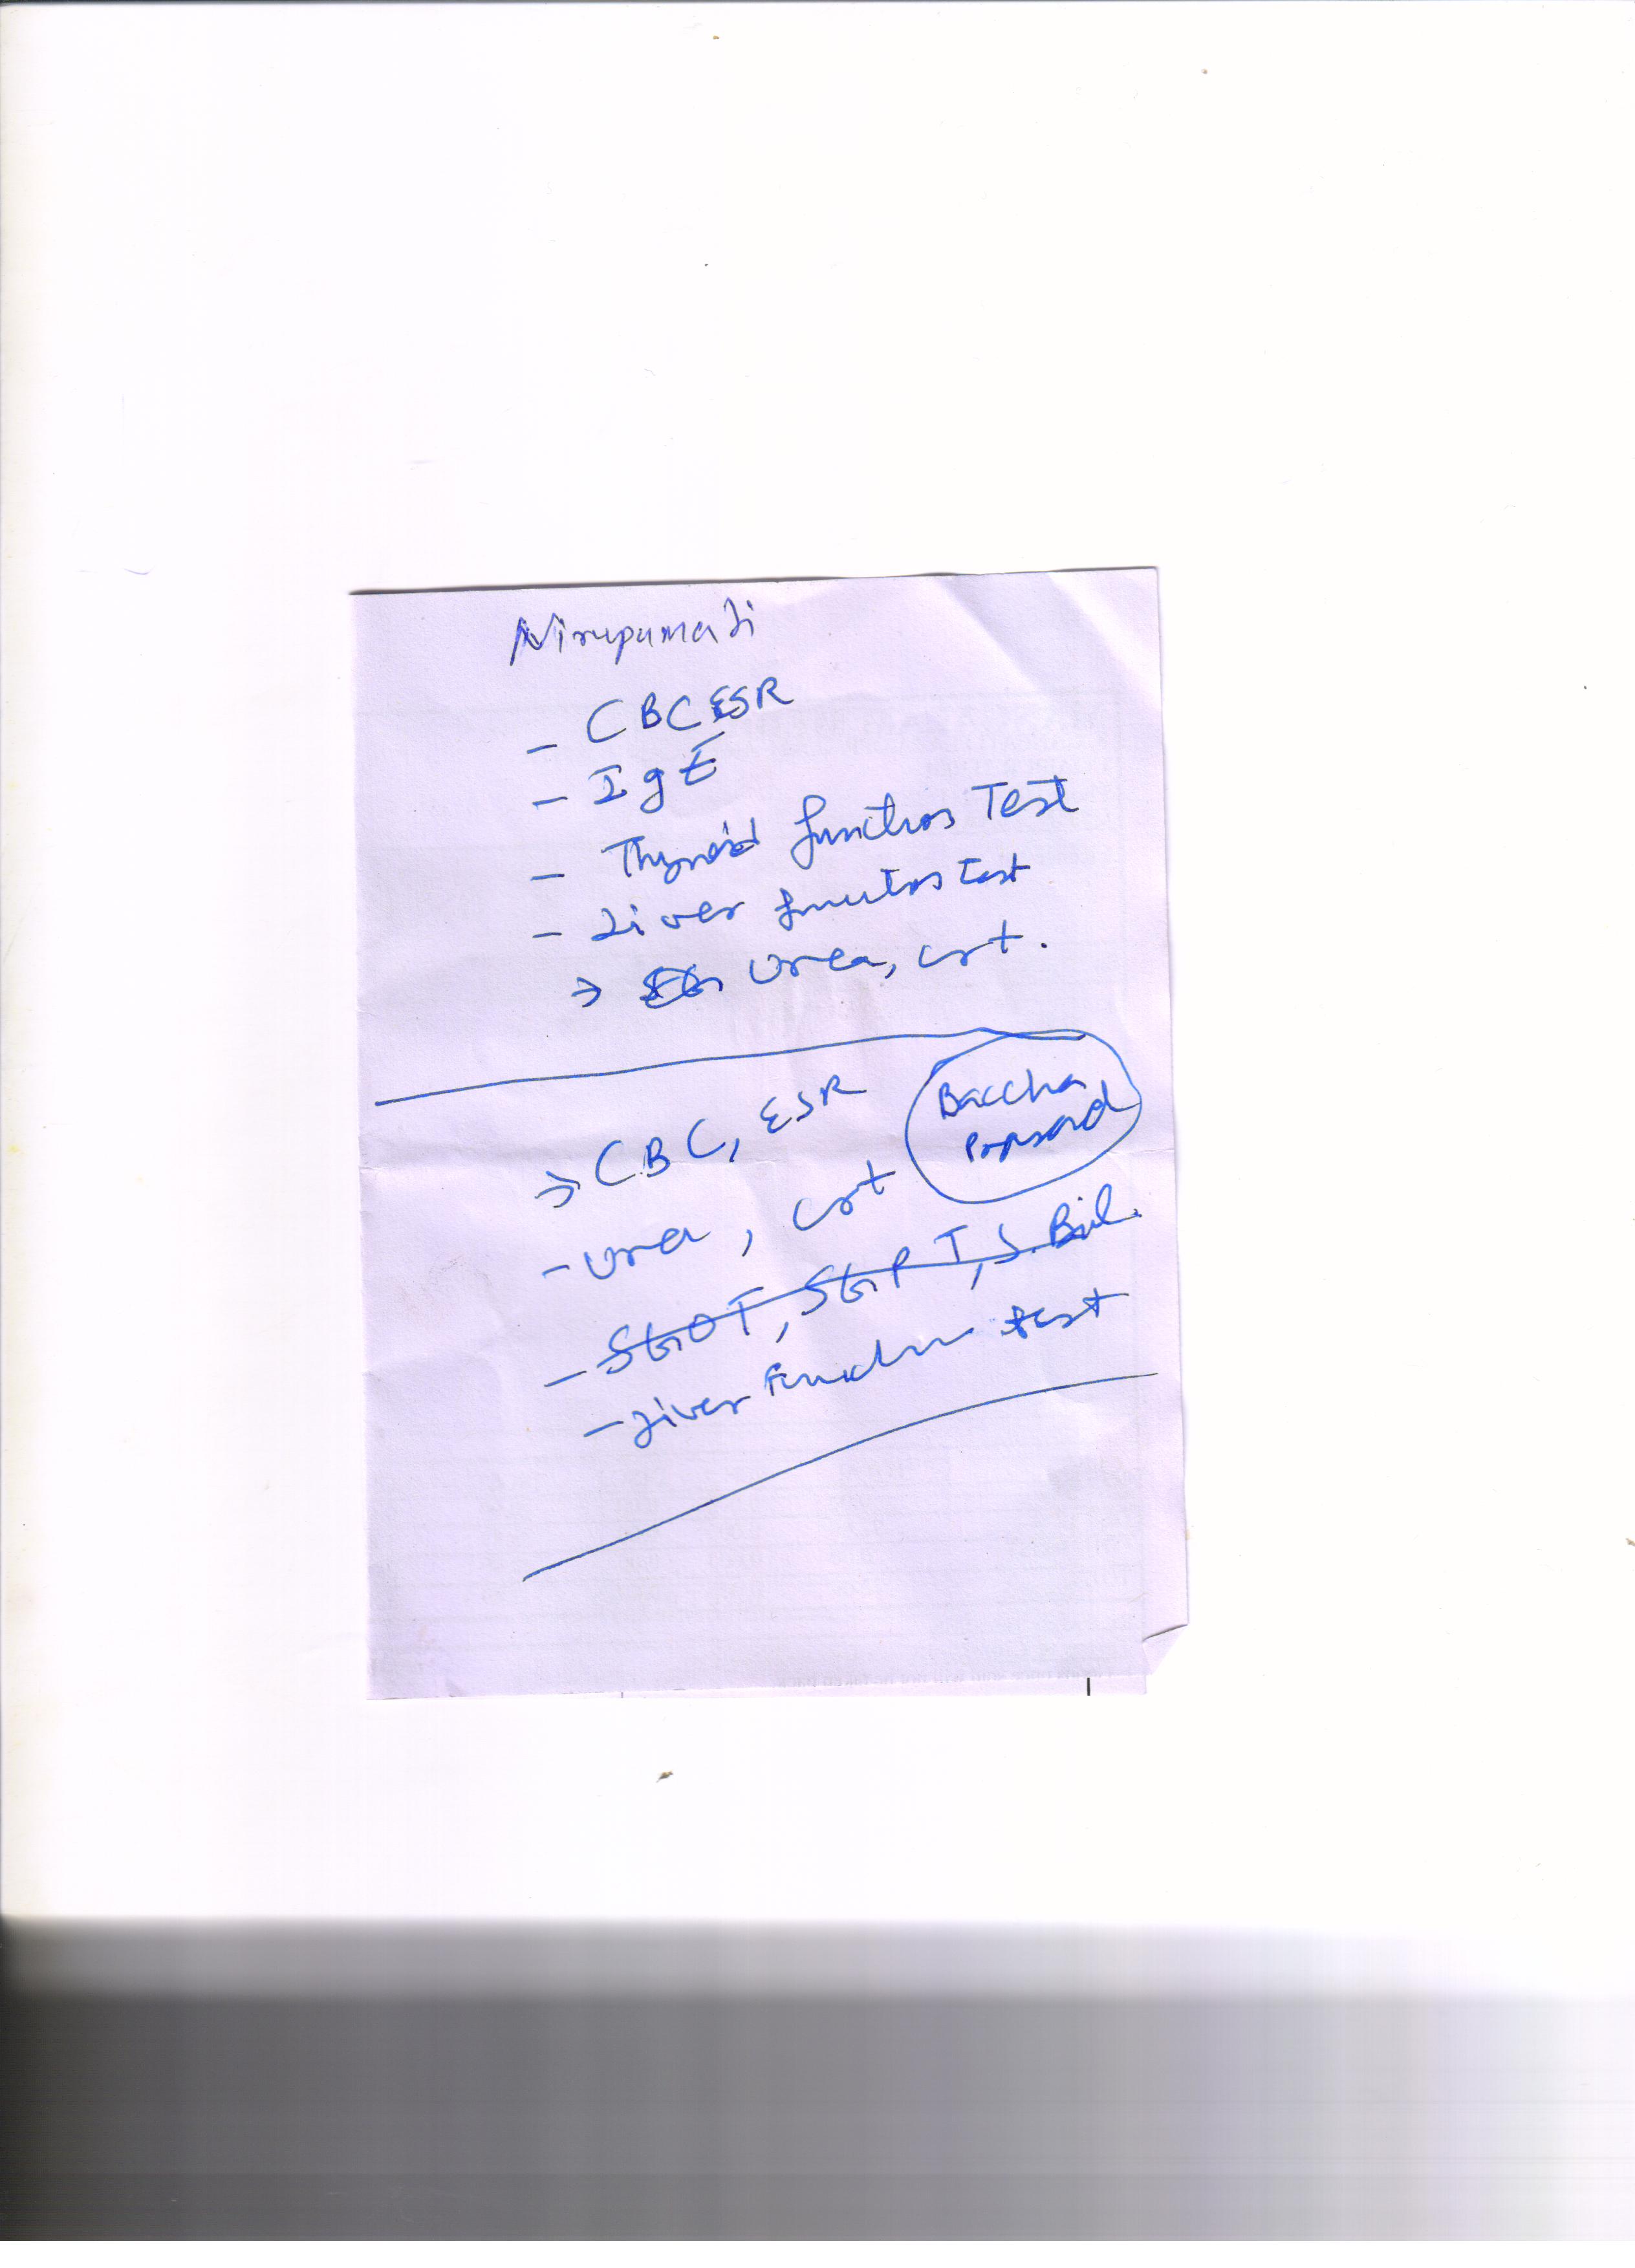 Nirupama Ji
- CBC ESR
- IgE
- Thyroid function Test
- Liver function test
→ urea, crt.
→ CBC, ESR
Baccha
Prasad
- urea, crt
- SGOT, SGPT, S. Bil.
- Liver Function test